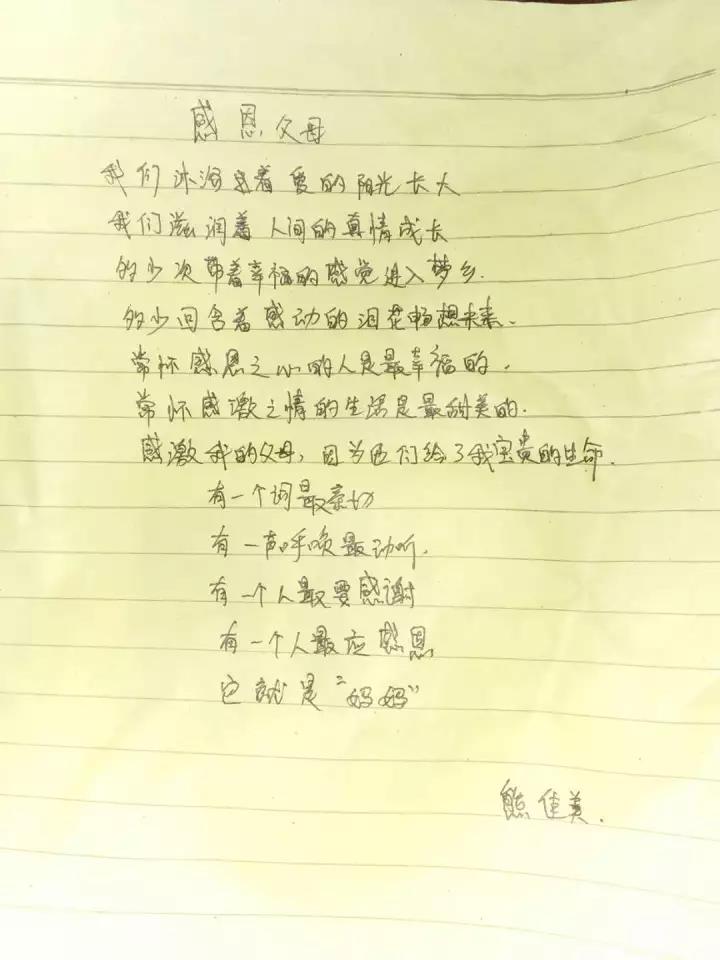 感恩父母
我们沐浴着爱的阳光长大
我们滋润着人间的真情成长
多少次带着幸福的感觉进入梦乡.
多少回含着感动的泪花畅想未来.
常怀感恩之心的人是最幸福的.
常怀感激之情的生活是最甜美的.
感激我的父母,因为他们给了我宝贵的生命.
有一个词最亲切
有一声呼唤最动听.
有一个人最要感谢
有一个人最应感恩
它就是"妈妈"
熊佳美.